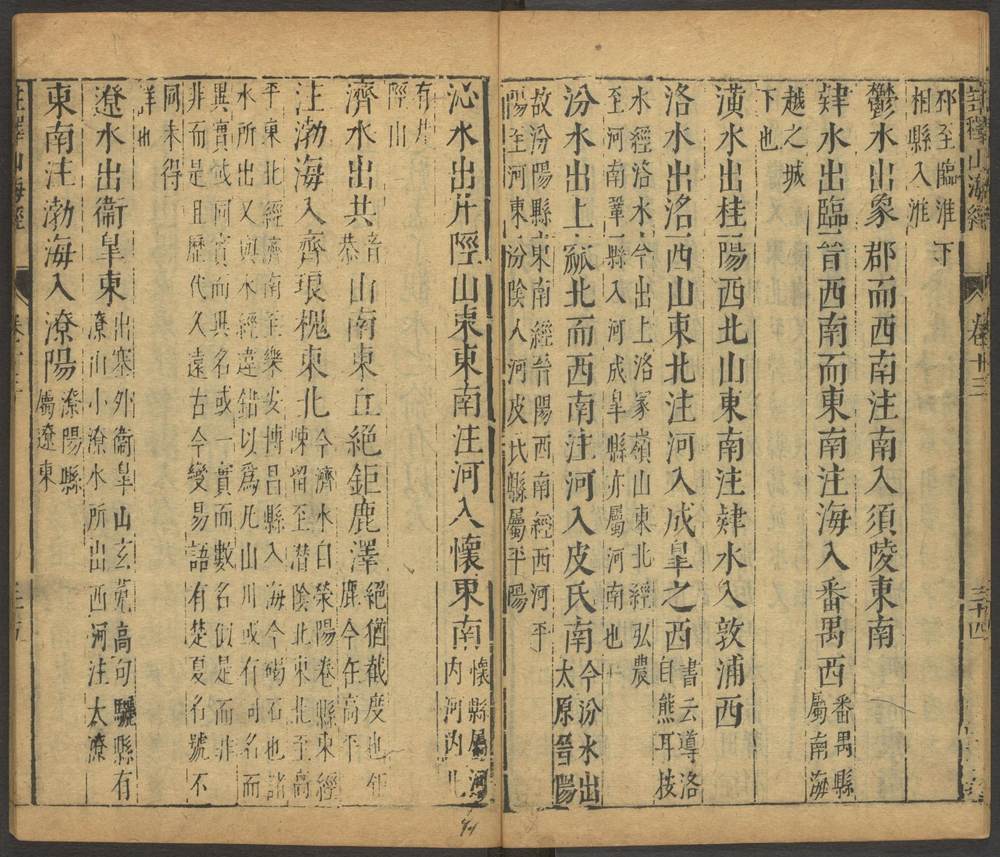 註釋山海經 卷十三 三十四
邳至臨淮下
相縣入淮
鬱水出象郡而西南注南入須陵東南
肄水出臨晉西南而東南注海入番禺西番禺縣屬南海
越之城
下也
潢水出桂陽西北山東南注肄水入敦浦西
洛水出洛西山東北注河入成皐之西書云導洛自熊耳技
水經洛水今出上洛冢嶺山東北經弘農
至河南鞏縣入河成皐縣亦屬河南也
汾水出上窳北而西南注河入皮氏南今汾水出太原晉陽
故汾陽縣東南經晉陽西南經西河平
陽至河東汾陰入河皮氏縣屬平陽
沁水出井陘山東東南注河入懷東南懷縣屬河內河內北
有井
陘山
濟水出共音恭山南東丘絕鉅鹿澤絕猶截度也鉅鹿今在高平
注渤海入齊琅槐東北今濟水自滎陽卷縣東經陳留至潛陰北東北至高
平東北經濟南至樂安博昌縣入海今碣石也諸
水所出又與水經違錯以爲凡山川或有同名而
異實或同實而異名或一實而數名似是而非
非而是且歷代久遠古今變易語有楚夏名號不
同未得
詳也
潦水出衞皐東出塞外衞皐山玄菟高句驪縣有潦山小潦水所出西河注大潦
東南注渤海入潦陽潦陽縣屬遼東
註釋山海經 卷十三 三十五